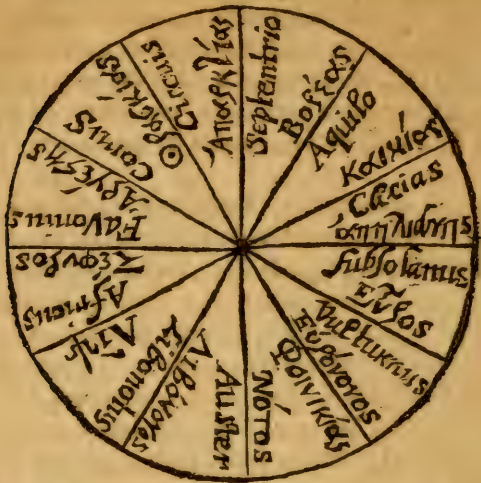 Septemtrio
Βορέας
Aquilo
καικίας
Cæcias
ἀπηλιώτης
Subsolanus
Εὖρος
Vulturnus
Εὐρόνοτος
Φοινικίας
Νότος
Auster
Λιβόνοτος
Libonotus
Λίψ
Africus
Ζέφυρος
Favonius
Ἀργέστης
Corus
Θρασκίας
Circius
Ἀπαρκτίας